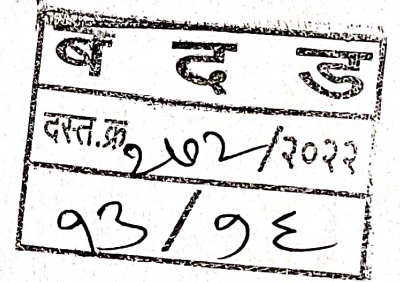 ब द ड
दस्त.क्र २७२/२०२२
१३/१६